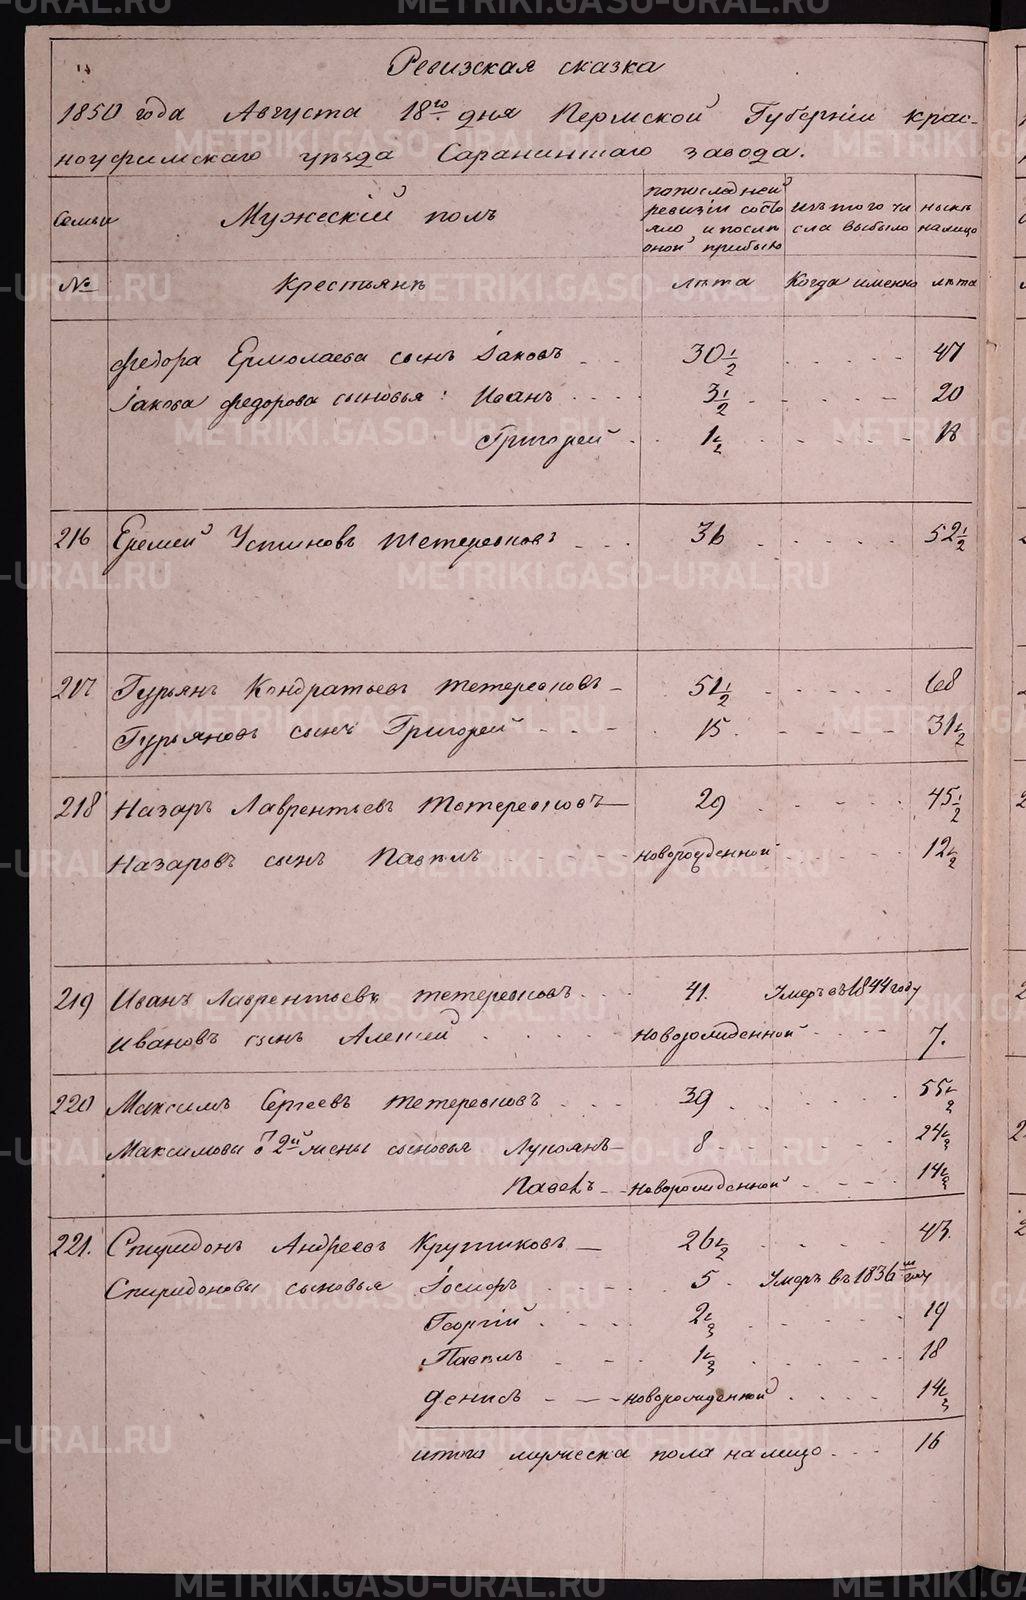 Ревизская сказка
1850 года Августа 18го дня Пермской Губерніи Крас-
ноуфимскаго уѣзда Саранинскаго завода.
Семьи
Мужескій полъ
по последней ревизіи состояло и послѣ оной прибыло
изъ того числа выбыло
нынѣ налицо
№
Крестьянъ
лѣта
Когда именно
лѣта
Федора Ермолаева сынъ Іаковъ 30 1/2 47
Іакова Федорова сыновья: Иванъ 3 1/2 20
Григорей 1 1/2 18
216 Еремей Устиновъ Тетереовковъ 36 52 1/2
217 Гурьянъ Кондратьевъ Тетереовковъ 51 1/2 68
Гурьяновъ сынъ Григорей 15 31 1/2
218 Назаръ Лаврентьевъ Тетереовковъ 29 45 1/2
Назаровъ сынъ Павелъ новорожденной 12 1/2
219 Иванъ Лаврентьевъ Тетереовковъ 41. Умеръ въ 1844 году
Ивановъ сынъ Алексей новорожденной 7.
220 Максимъ Сергеевъ Тетереовковъ 39 55 1/2
Максимовы от 2й жены сыновья Лукоянъ 8 24 1/2
Павелъ новорожденной 14 1/2
221. Спиридонъ Андреевъ Крутиковъ 26 1/2 43.
Спиридоновы сыновья Іосифъ 5 Умеръ въ 1836м году
Георгій 2 1/2 19
Павелъ 1 1/2 18
Денисъ новорожденной 14 1/2
итого мужеска пола налицо 16
METRIKI.GASO-URAL.RU